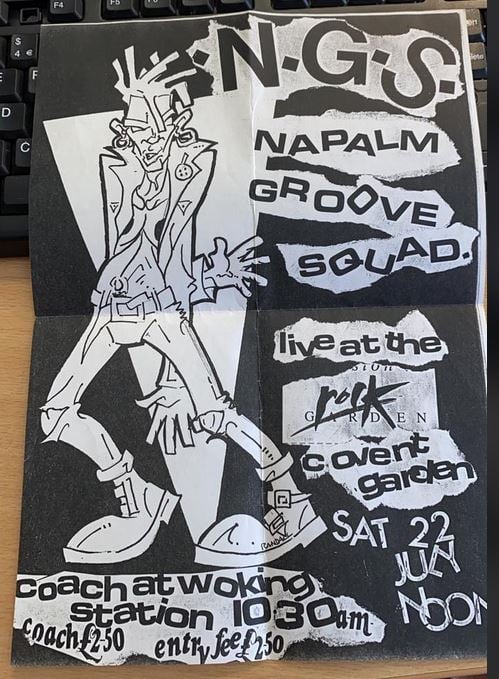 ·N·G·S·
NAPALM
GROOVE
SQUAD.
live at the
rock
GARDEN
covent
garden
SAT 22
JULY
NOON
RANDALL
coach at woking
station 10·30am
coach £2·50 entry fee £2·50
F4
F5
F6
F7
$
4 €
E
D
C